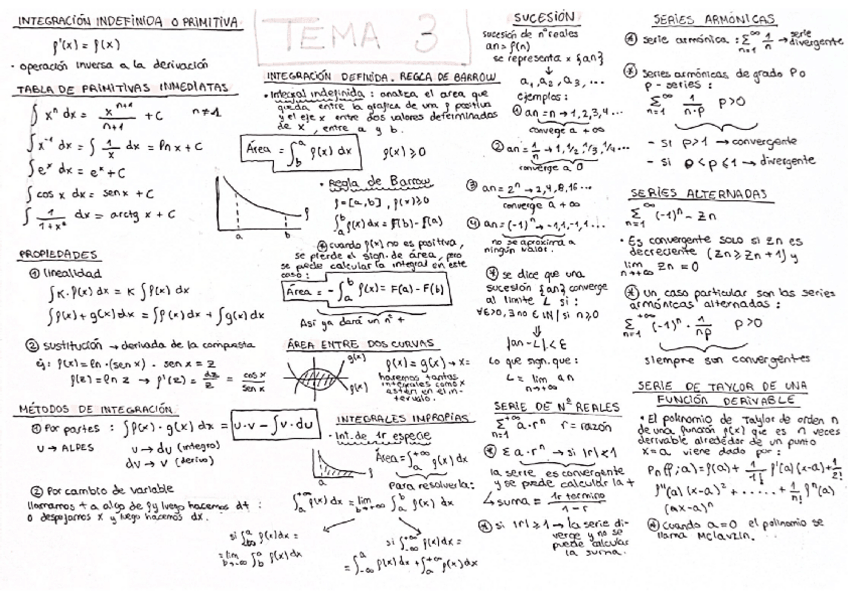 TEMA 3
INTEGRACIÓN INDEFINIDA O PRIMITIVA
f'(x) = f(x)
· operación inversa a la derivación
TABLA DE PRIMITIVAS INMEDIATAS
∫ xⁿ dx = xⁿ⁺¹/n+1 + C n≠1
∫ x⁻¹ dx = ∫ 1/x dx = ln x + C
∫ eˣ dx = eˣ + C
∫ cos x dx = sen x + C
∫ 1/1+x² dx = arctg x + C
PROPIEDADES
① linealidad
∫ K·f(x) dx = K ∫ f(x) dx
∫ f(x) + g(x) dx = ∫ f(x) dx + ∫ g(x) dx
② sustitución → derivada de la compuesta
ej: f(x) = ln·(sen x) · sen x = z
f(z) = ln z → f'(z) = dz/z = cos x/sen x
MÉTODOS DE INTEGRACIÓN
① Por partes: ∫ f(x)·g(x) dx = u·v - ∫ v·du
u → ALPES u → du (integro)
dv → v (derivo)
② Por cambio de variable
llamamos t a algo de f y luego hacemos dt :
o despejamos x y luego hacemos dx.
INTEGRACIÓN DEFINIDA. REGLA DE BARROW
· Integral indefinida : analiza el area que
queda entre la gráfica de una f positiva
y el eje x entre dos valores determinados
de x, entre a y b.
Área = ∫ₐᵇ f(x) dx f(x) ≥ 0
f
a b
· Regla de Barrow
f = [a,b] , f(x) ≥ 0
∫ₐᵇ f(x) dx = F(b) - F(a)
cuando f(x) no es positiva,
se pierde el sign. de área, pero
se puede calcular la integral en este
caso:
Área = -∫ₐᵇ f(x) = F(a) - F(b)
Así ya dará un nº +
ÁREA ENTRE DOS CURVAS
g(x)
f(x)
f(x) = g(x) → x =
hacemos tantas
integrales como x
estén en el in-
tervalo.
INTEGRALES IMPROPIAS
· Int. de 1r especie
Área = ∫ₐ⁺∞ f(x) dx
Para resolverla:
∫ₐ⁺∞ f(x) dx = lim b→+∞ ∫ₐᵇ f(x) dx
= lim b→-∞ ∫ᵇᵃ f(x) dx
si ∫₋∞⁺∞ f(x) dx =
= ∫₋∞ᵃ f(x) dx + ∫ₐ⁺∞ f(x) dx
SUCESIÓN
sucesión de nº reales
an = f(n)
se representa x {an}
a₁, a₂, a₃, ...
ejemplos:
① an = n → 1, 2, 3, 4...
converge a +∞
② an = 1/n → 1, 1/2, 1/3, 1/4...
converge a 0
③ an = 2ⁿ → 2, 4, 8, 16...
converge a +∞
④ an = (-1)ⁿ → -1, 1, -1, 1...
no se aproxima a
ningún valor.
se dice que una
sucesión {an} converge
al límite L si:
|an - L| < ε
Lo que sign. que:
L = lim n→+∞ an
SERIE DE Nº REALES
+∞ Σ n=1 a·rⁿ r = razón
Σ a·rⁿ → si |r| < 1
la serie es convergente
y se puede calcular la +
↳ suma = 1r termino/1 - r
si |r| ≥ 1 → la serie di-
verge y no se
puede calcular
la suma.
SERIES ARMÓNICAS
serie armónica : +∞ Σ n=1 1/n → serie divergente
series armónicas de grado P o
P - series :
+∞ Σ n=1 1/n·p p>0
- si p>1 → convergente
- si 0<p≤1 → divergente
SERIES ALTERNADAS
+∞ Σ n=1 (-1)ⁿ - Zn
· Es convergente solo si Zn es
decreciente (Zn ≥ Zn+1) y
lim n→+∞ Zn = 0
un caso particular son las series
armónicas alternadas :
+∞ Σ n=1 (-1)ⁿ · 1/np p>0
siempre son convergentes
SERIE DE TAYLOR DE UNA
FUNCIÓN DERIVABLE
· El polinomio de Taylor de orden n
de una función f(x) que es n veces
derivable alrededor de un punto
x=a viene dado por :
Pn(f;a) = f(a) + 1/1! f'(a)(x-a) + 1/2!
f''(a)(x-a)² + ...... + 1/n! fⁿ(a)
cuando a=0 el polinomio se